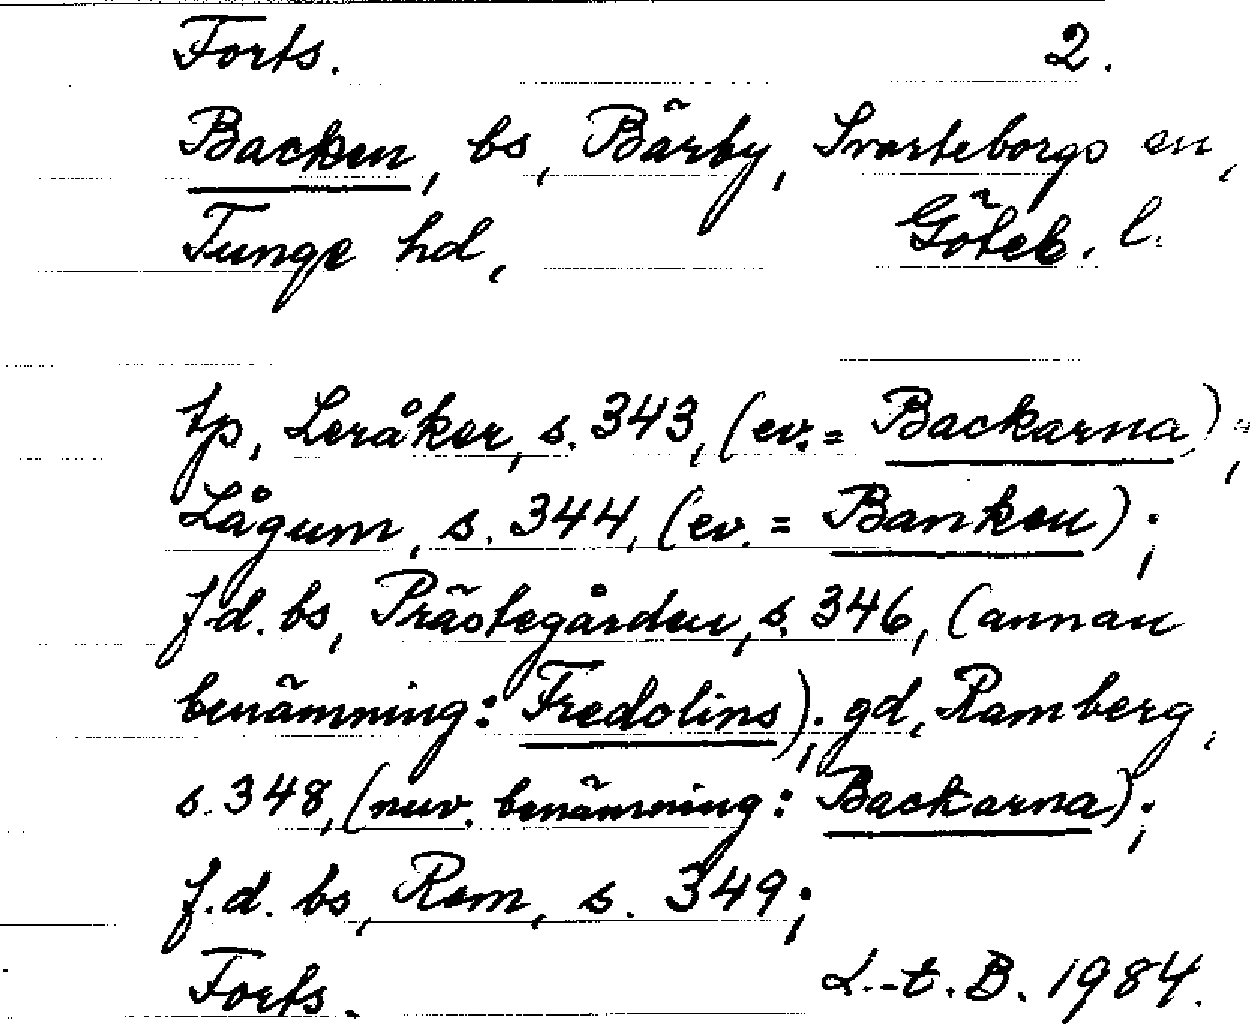 Forts. 2.
Backen, bs, Bärby, Svarteborgs sn,
Tunge hd, Göteb. l.
tp, Leråker, s. 343, (ev. = Backarna);
Lågum, s. 344, (ev. = Banken);
f.d. bs, Prästegården, s. 346, (annan
benämning: Fredolins); gd, Ramberg,
s. 348, (nuv. benämning: Backarna);
f.d. bs, Rom, s. 349;
Forts. L.-t. B. 1984.